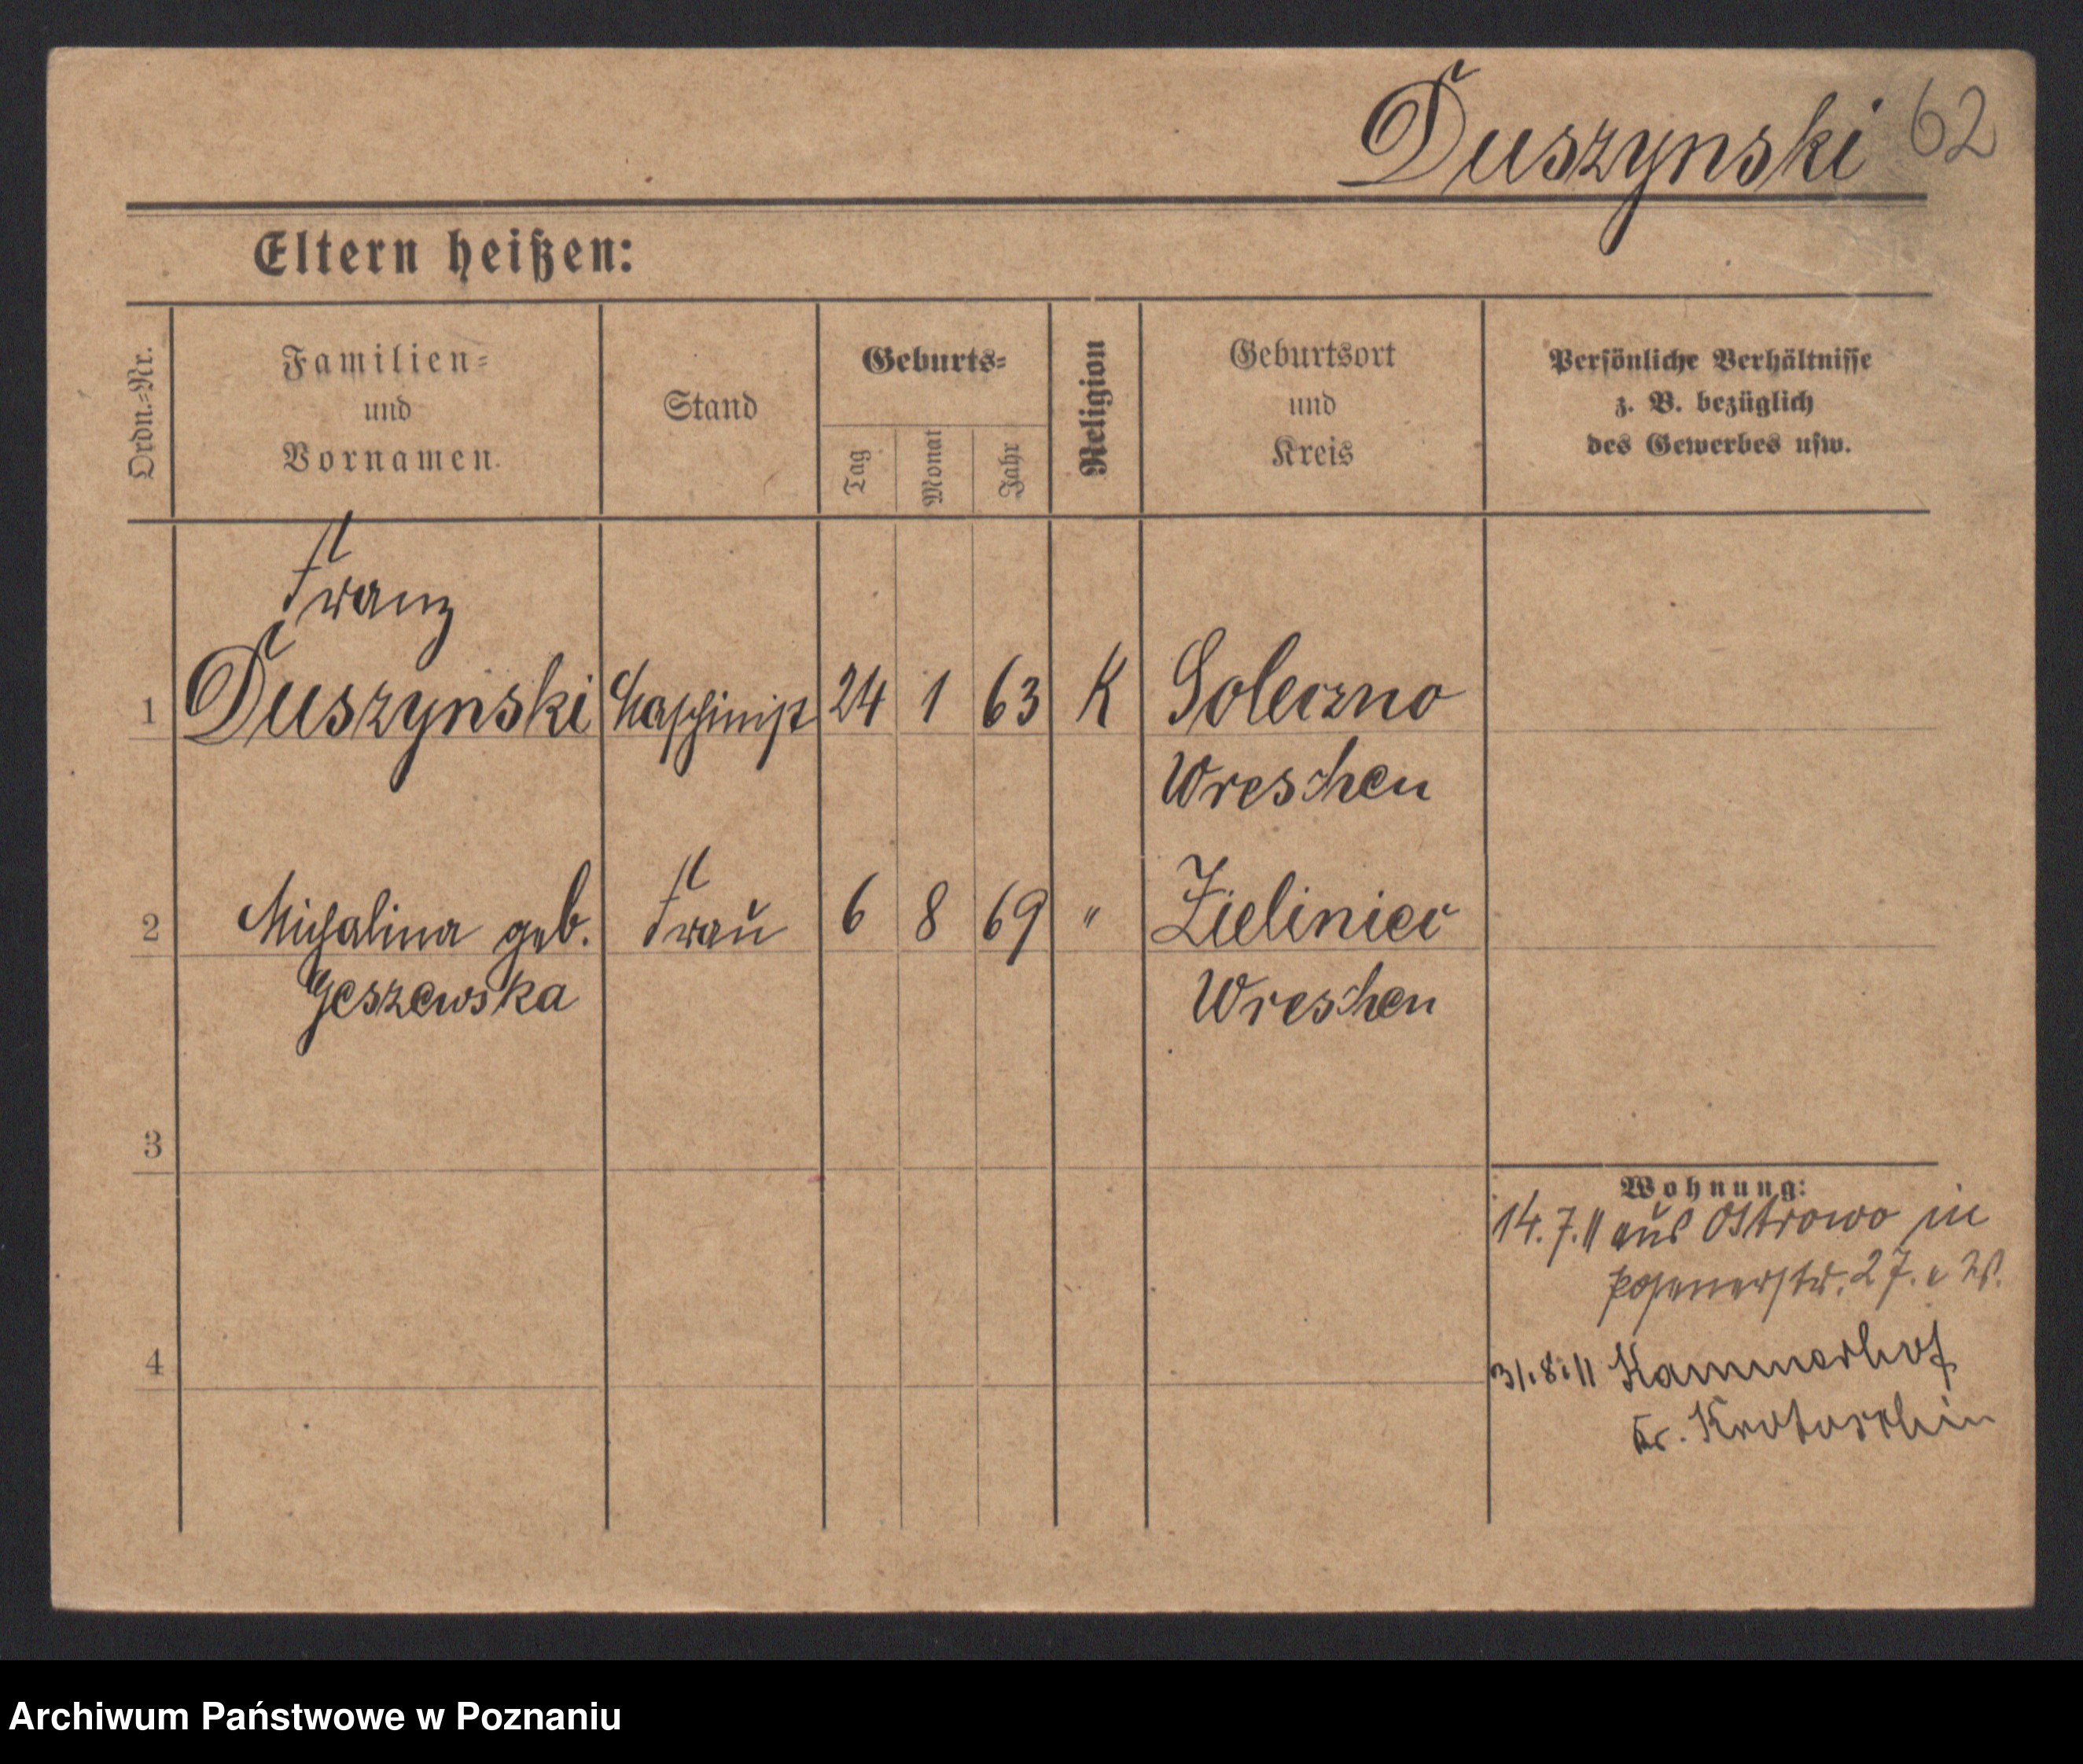 Duszynski 62
Eltern heißen:
Ordn.-Nr.
Familien-
und
Vornamen.
Stand
Geburts-
Tag
Monat
Jahr
Religion
Geburtsort
und
Kreis
Persönliche Verhältnisse
z. B. bezüglich
des Gewerbes usw.
Franz
1 Duszynski Maschinist 24 1 63 K Soleczno
Wreschen
2 Michalina geb. Frau 6 8 69 " Zieliniec
Geszewska Wreschen
3
Wohnung:
14.7.11 aus Ostrowo in
Posenerstr. 27.
4
31.8.11 Kammerhof
Kr. Krotoschin
Archiwum Państwowe w Poznaniu